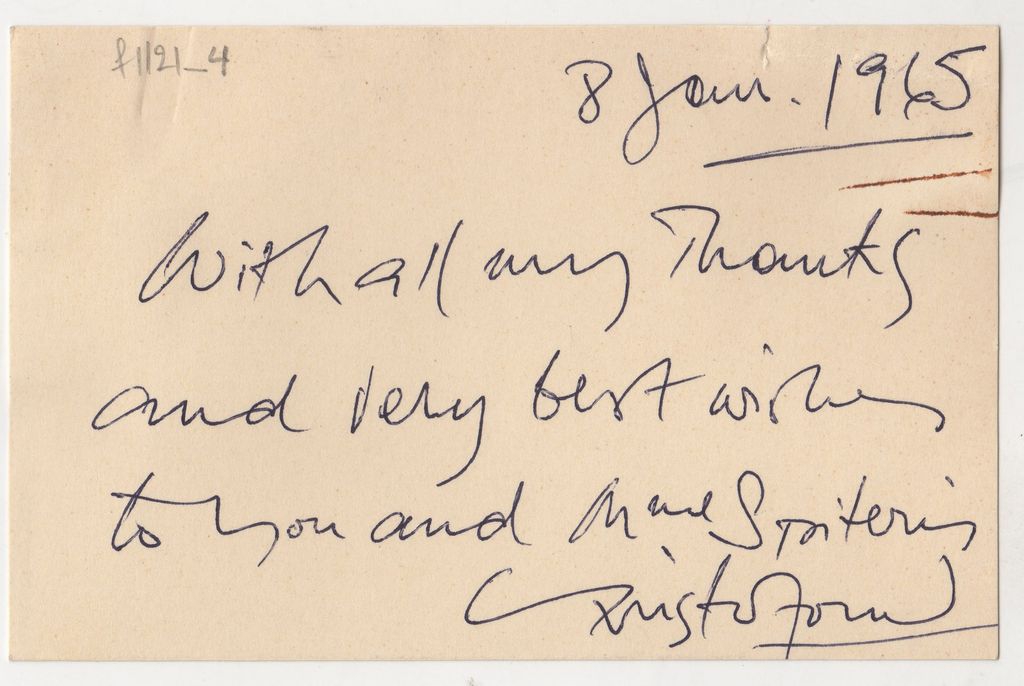 f1/21_4
8 Jan. 1965
With all my Thanks
and very best wishes
to you and Mme Spiteris
Christoforou